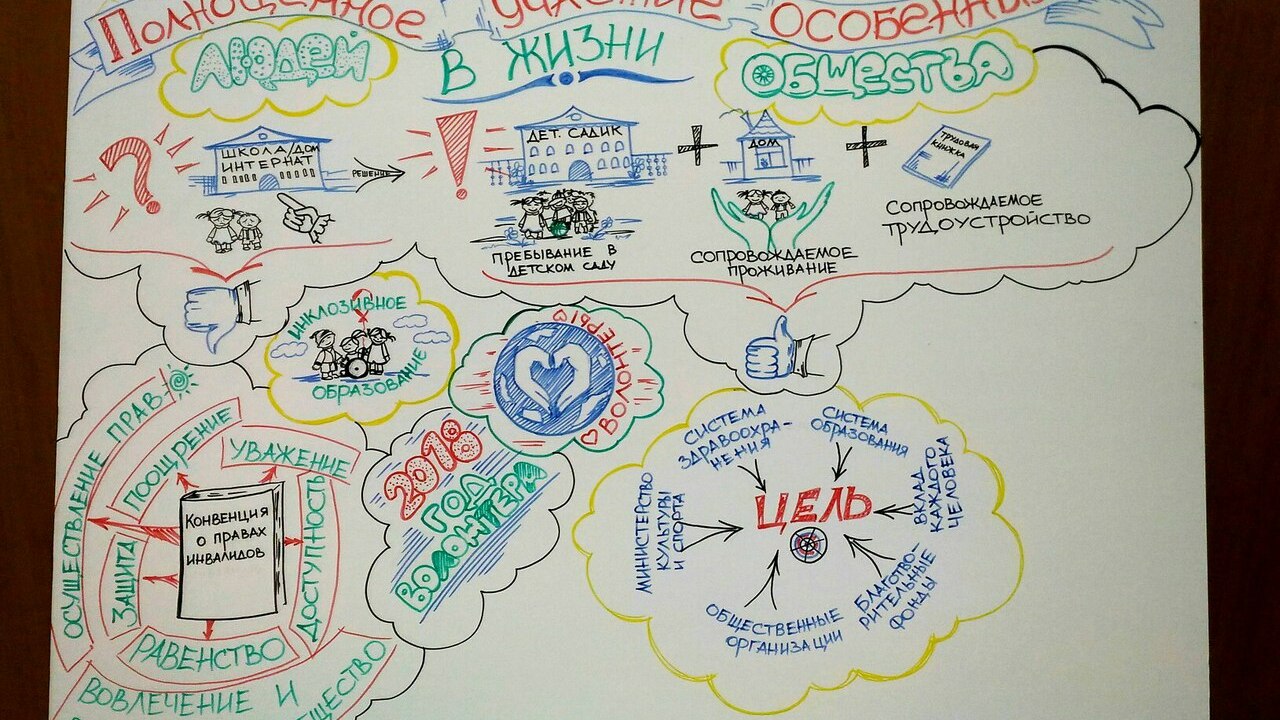 Полноценное участие особенных
людей в жизни общества
школа/дом
интернат
решение
дет. садик
дом
трудовая
книжка
пребывание в
детском саду
сопровождаемое
проживание
сопровождаемое
трудоустройство
инклюзивное
образование
волонтеры
2018
год
волонтера
осуществление прав
поощрение
уважение
защита
Конвенция
о правах
инвалидов
доступность
равенство
вовлечение и
система
здравоохра-
нения
система
образования
министерство
культуры
и спорта
цель
вклад
каждого
человека
общественные
организации
благотво-
рительные
фонды